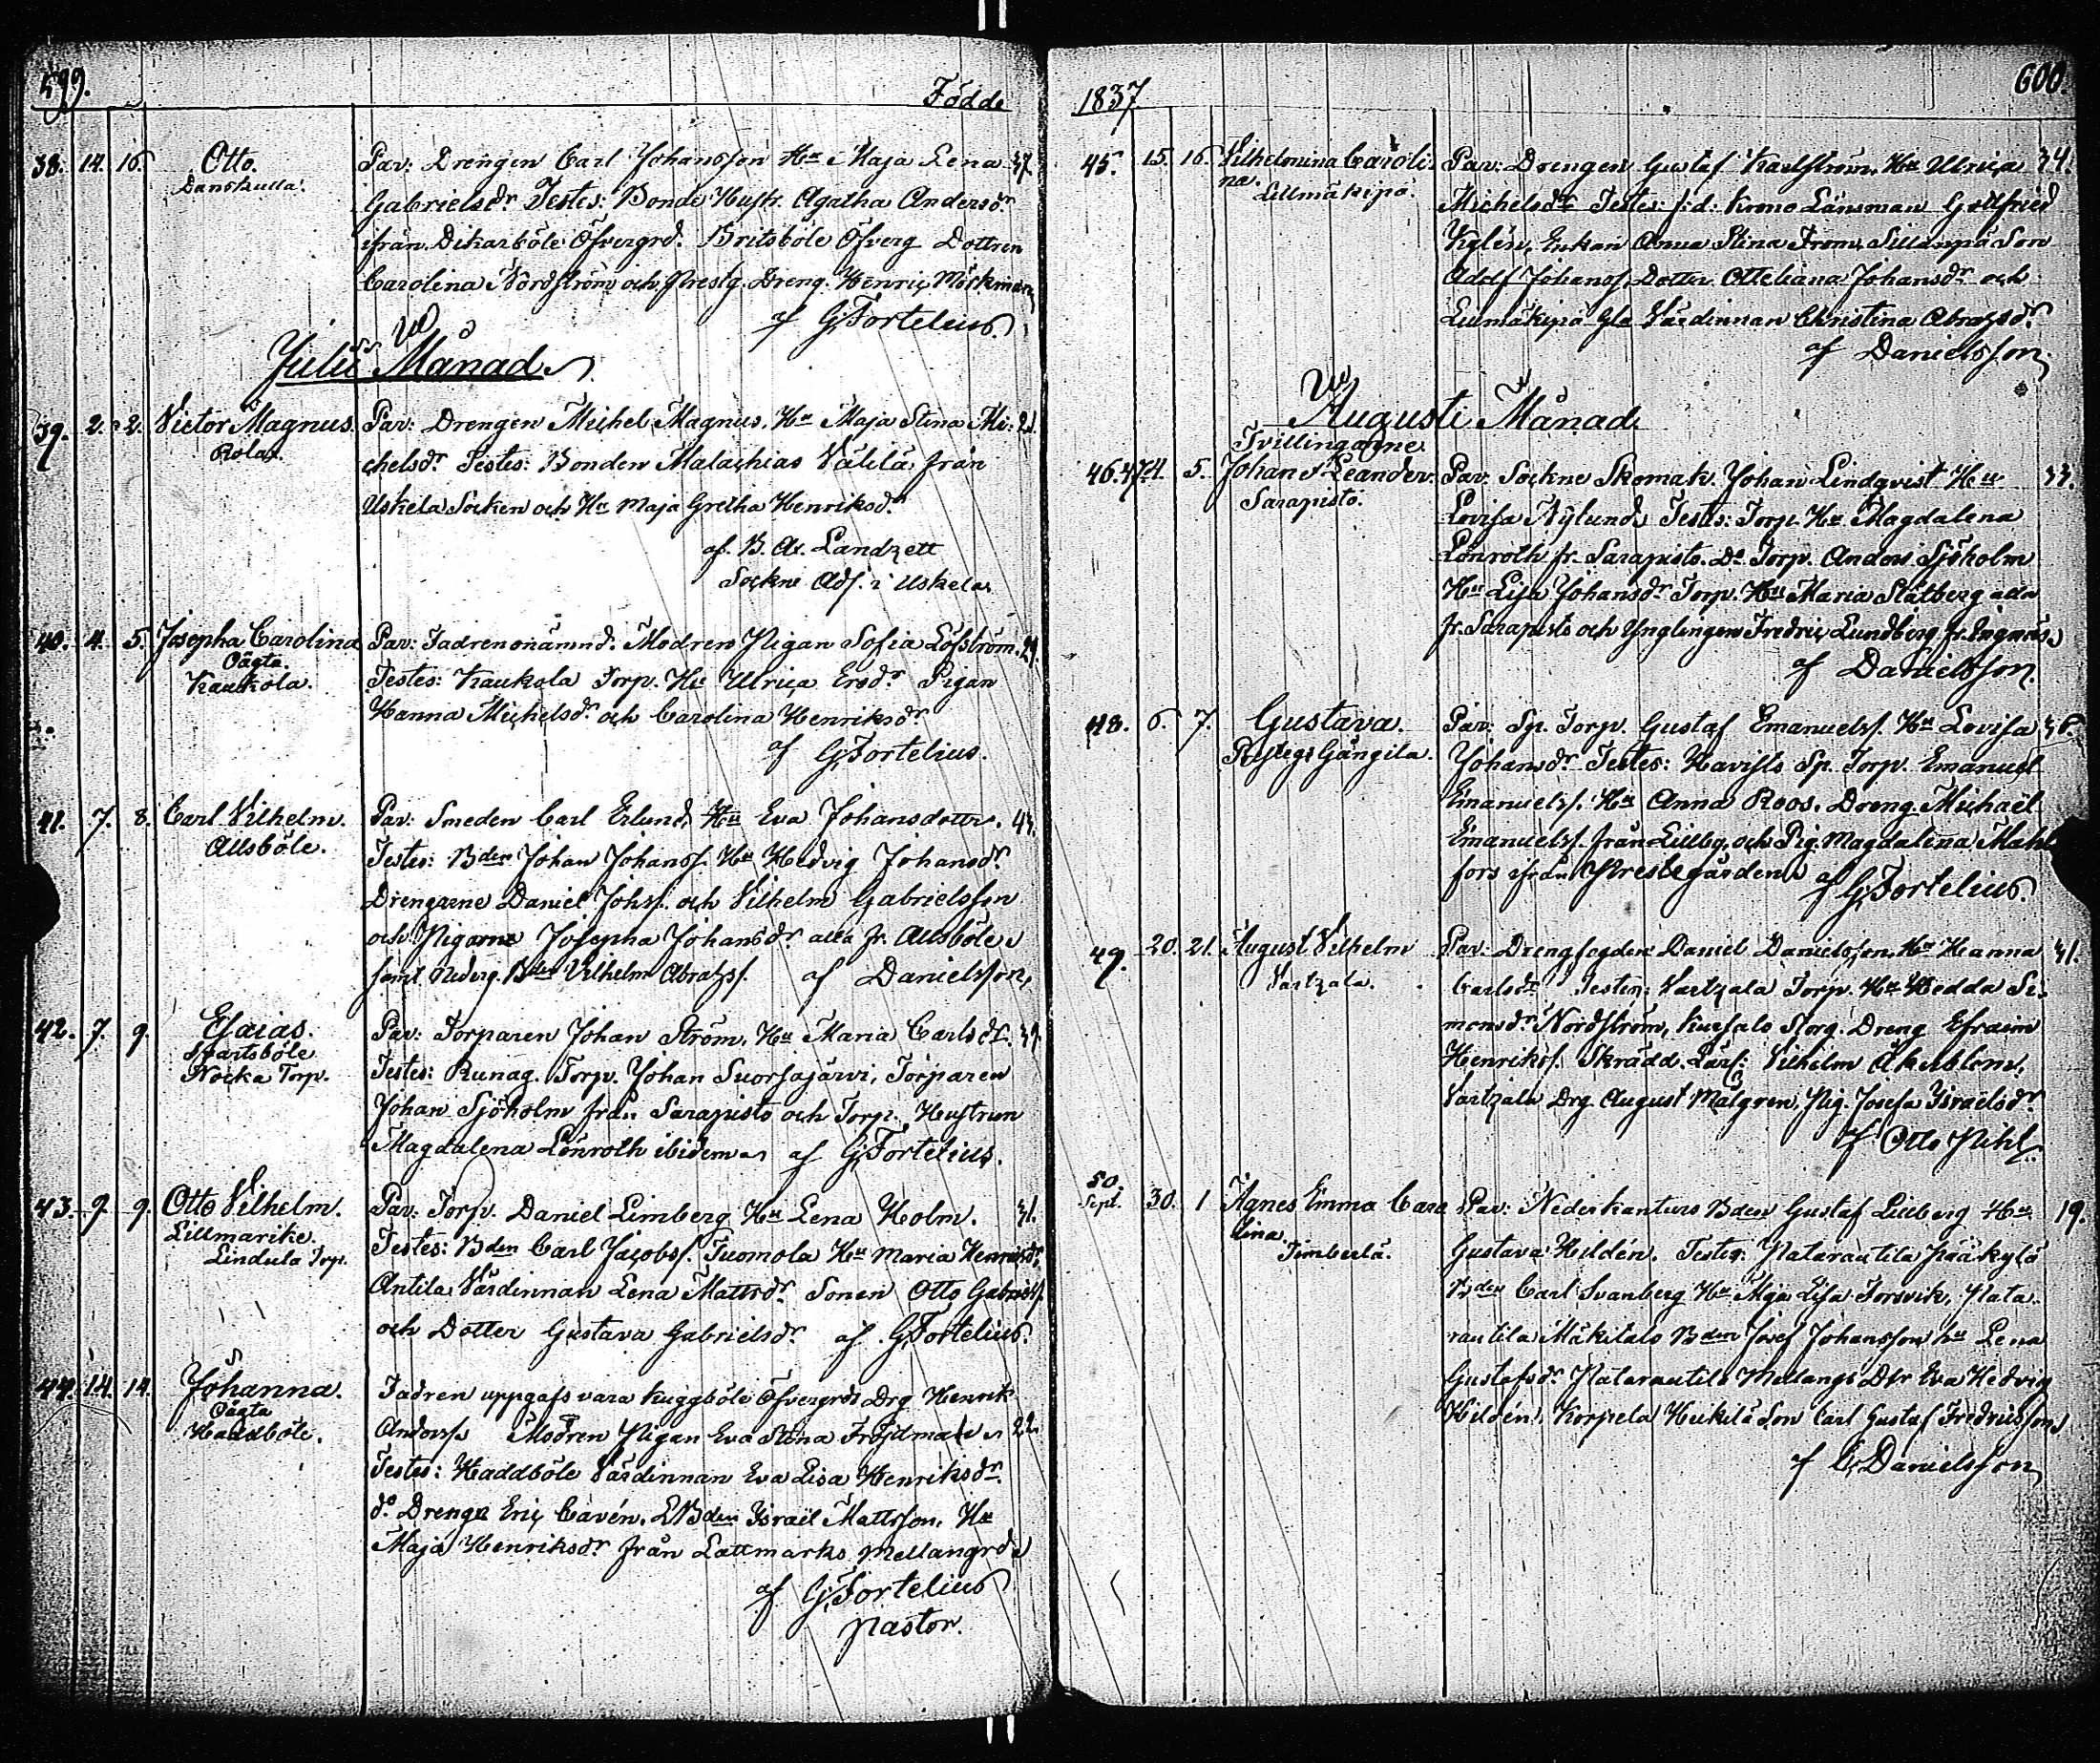 599.
Födde
38. 14. 16. Otto. Par: Drengen Carl Johansson Hu Maja Lena 37.
Danskulla. Gabrielsdr Testes: Bonde Hustr. Agatha Andersdr
ifrån Dikarböle Öfvergrd. Britsböle Öfverg Dottren
Carolina Nordström och Prestg. Dreng. Henric Mörkman
af G. Fortelius.
Julii Månad
39. 2. 2. Victor Magnus. Par: Drengen Michel Magnus. Hu Maja Stina Mi- 21.
chelsdr Testes: Bonden Malachias Välilä från
Uskela Socken och Hu Maja Gretha Henriksdr
af. B. A. Landzett
Sockne Adj. i Uskela
40. 4. 5. Josepha Carolina Par: Fadren onämnd. Modren Pigan Sofia Löfström. 29.
Oägta. Kaukola. Testes: Kaukola Torp. Hu Ulrica Ersdr Pigan
Hanna Michelsdr och Carolina Henriksdr
af G. Fortelius.
41. 7. 8. Carl Vilhelm. Par: Smeden Carl Erlund, Hu Eva Johansdotter. 43.
Allsböle. Testes: Bden Johan Johanss. Hu Hedvig Johansdr
Drengarne Daniel Johss. och Vilhelm Gabrielsson
och Pigarne Josepha Johansdr alla fr. Allsböle
samt Nederg. Bden Vilhelm Abrahss. af Danielsson,
42. 7. 9. Esaias. Par: Torparen Johan Ström, Hu Maria Carlsdr. 39.
Svartsböle Testes: Runag. Torp. Johan Suorsajärvi, Torparen
Nocka Torp. Johan Sjöholm från Sarapisto och Torp. Hustrun
Magdalena Lönroth ibidem af G. Fortelius.
43. 9. 9. Otto Vilhelm. Par: Torp. Daniel Limberg Hu Lena Holm. 31.
Lillmarike. Testes: Bden Carl Jacobss. Tuomola Hu Maria Henriksdr
Lindula Torp. Antila Värdinnan Lena Mattsdr Sonen Otto Gabrielss.
och Dotter Gustava Gabrielsdr af G. Fortelius.
44. 14. 14. Johanna. Fadren uppgafs vara Kuggböle Öfvergrds Drg Henrik
Oägta Anderss Modren Pigan Eva Stina 22.
Haddböle. Testes: Haddböle Värdinnan Eva Lisa Henriksdr
do Drenge Eric Cavén. Bden Israel Mattsson. Hu
Maja Henriksdr från Lattmarks Mellangrd
af G. Fortelius
pastor.
1837
600.
45. 15. 16. Vilhelmina Caroli- Par: Drengen Gustaf Karlström, Hu Ulrica 34.
na. Lillmäkipä. Michelsdr Testes: f:d: Krono Länsman Gottfried
Enkan Anna Stina From, Sillanpä Son
Adolf Johanss, Dotter Otteliana Johansdr och
Lumäkipä Gla Värdinnan Christina Abrahsdr
af Danielsson.
Augusti Månad
Tvillingarne
46. 47. 4. 5. Johan & Leander. Par: Sockne Skomak. Johan Lindqvist Hu 33.
Sarapisto. Lovisa Nylund, Testes: Torp. Hu Magdalena
Lönroth fr. Sarapisto. Do Torp. Anders Sjöholm
Hu Lisa Johansdr Torp. Hu Maria Stålberg
fr. Sarapisto och Ynglingen Fredric Lundberg fr. Engnäs
af Danielsson.
48. 6. 7. Gustava. Par: Sp. Torp. Gustaf Emanuelss. Hu Lovisa 36.
Gångila. Johansdr Testes: Havisto Sp. Torp. Emanuel
Emanuelss. Hu Anna Roos. Dreng. Michaël
Emanuelss. från Lillbg, och Pig. Magdalena Mahl
fors ifrån Prestegården af G. Fortelius.
49. 20. 21. August Vilhelm Par: Drengfogden Daniel Danielsson, Hu Hanna 31.
Vartzala. Carlsdr Testes: Vartzala Torp. Hu Hedda Si-
monsdr Nordström, Storg. Dreng. Efraim
Henrikss. Skrädd. Lärl: Vilhelm Åkerblom,
Vartzala Drg August Malgren, Pig. Josefa Israelsdr
af Otto Pihl.
50. Sept. 30. 1 Agnes Emma Caro Par: Nederkanturs Bden Gustaf Lillberg Hu 19.
lina. Gustava Hildén. Testes: Patarautila Pääkylä
Timberlä. Bden Carl Svanberg Hu Maja Lisa Forsvik, Pata-
rautila Mäkitalo Bden Josef Johansson hu Lena
Gustafsdr Patarautila Mellang: Dtr Eva Hedvig
Hildén, Korpela Heikilä Son Carl Gustaf Fredricsson
af G. Danielsson